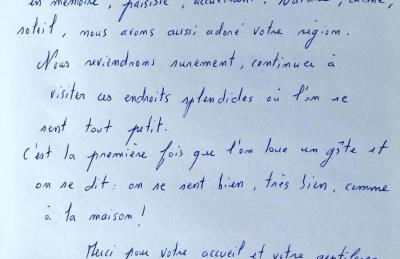 en mémoire, paisible,
soleil, nous avons aussi adoré votre région.
Nous reviendrons surement, continuer à
visiter ces endroits splendides où l'on se
sent tout petit.
C'est la première fois que l'on loue un gîte et
on se dit : on se sent bien, très bien, comme
à la maison !
Merci pour votre accueil et votre